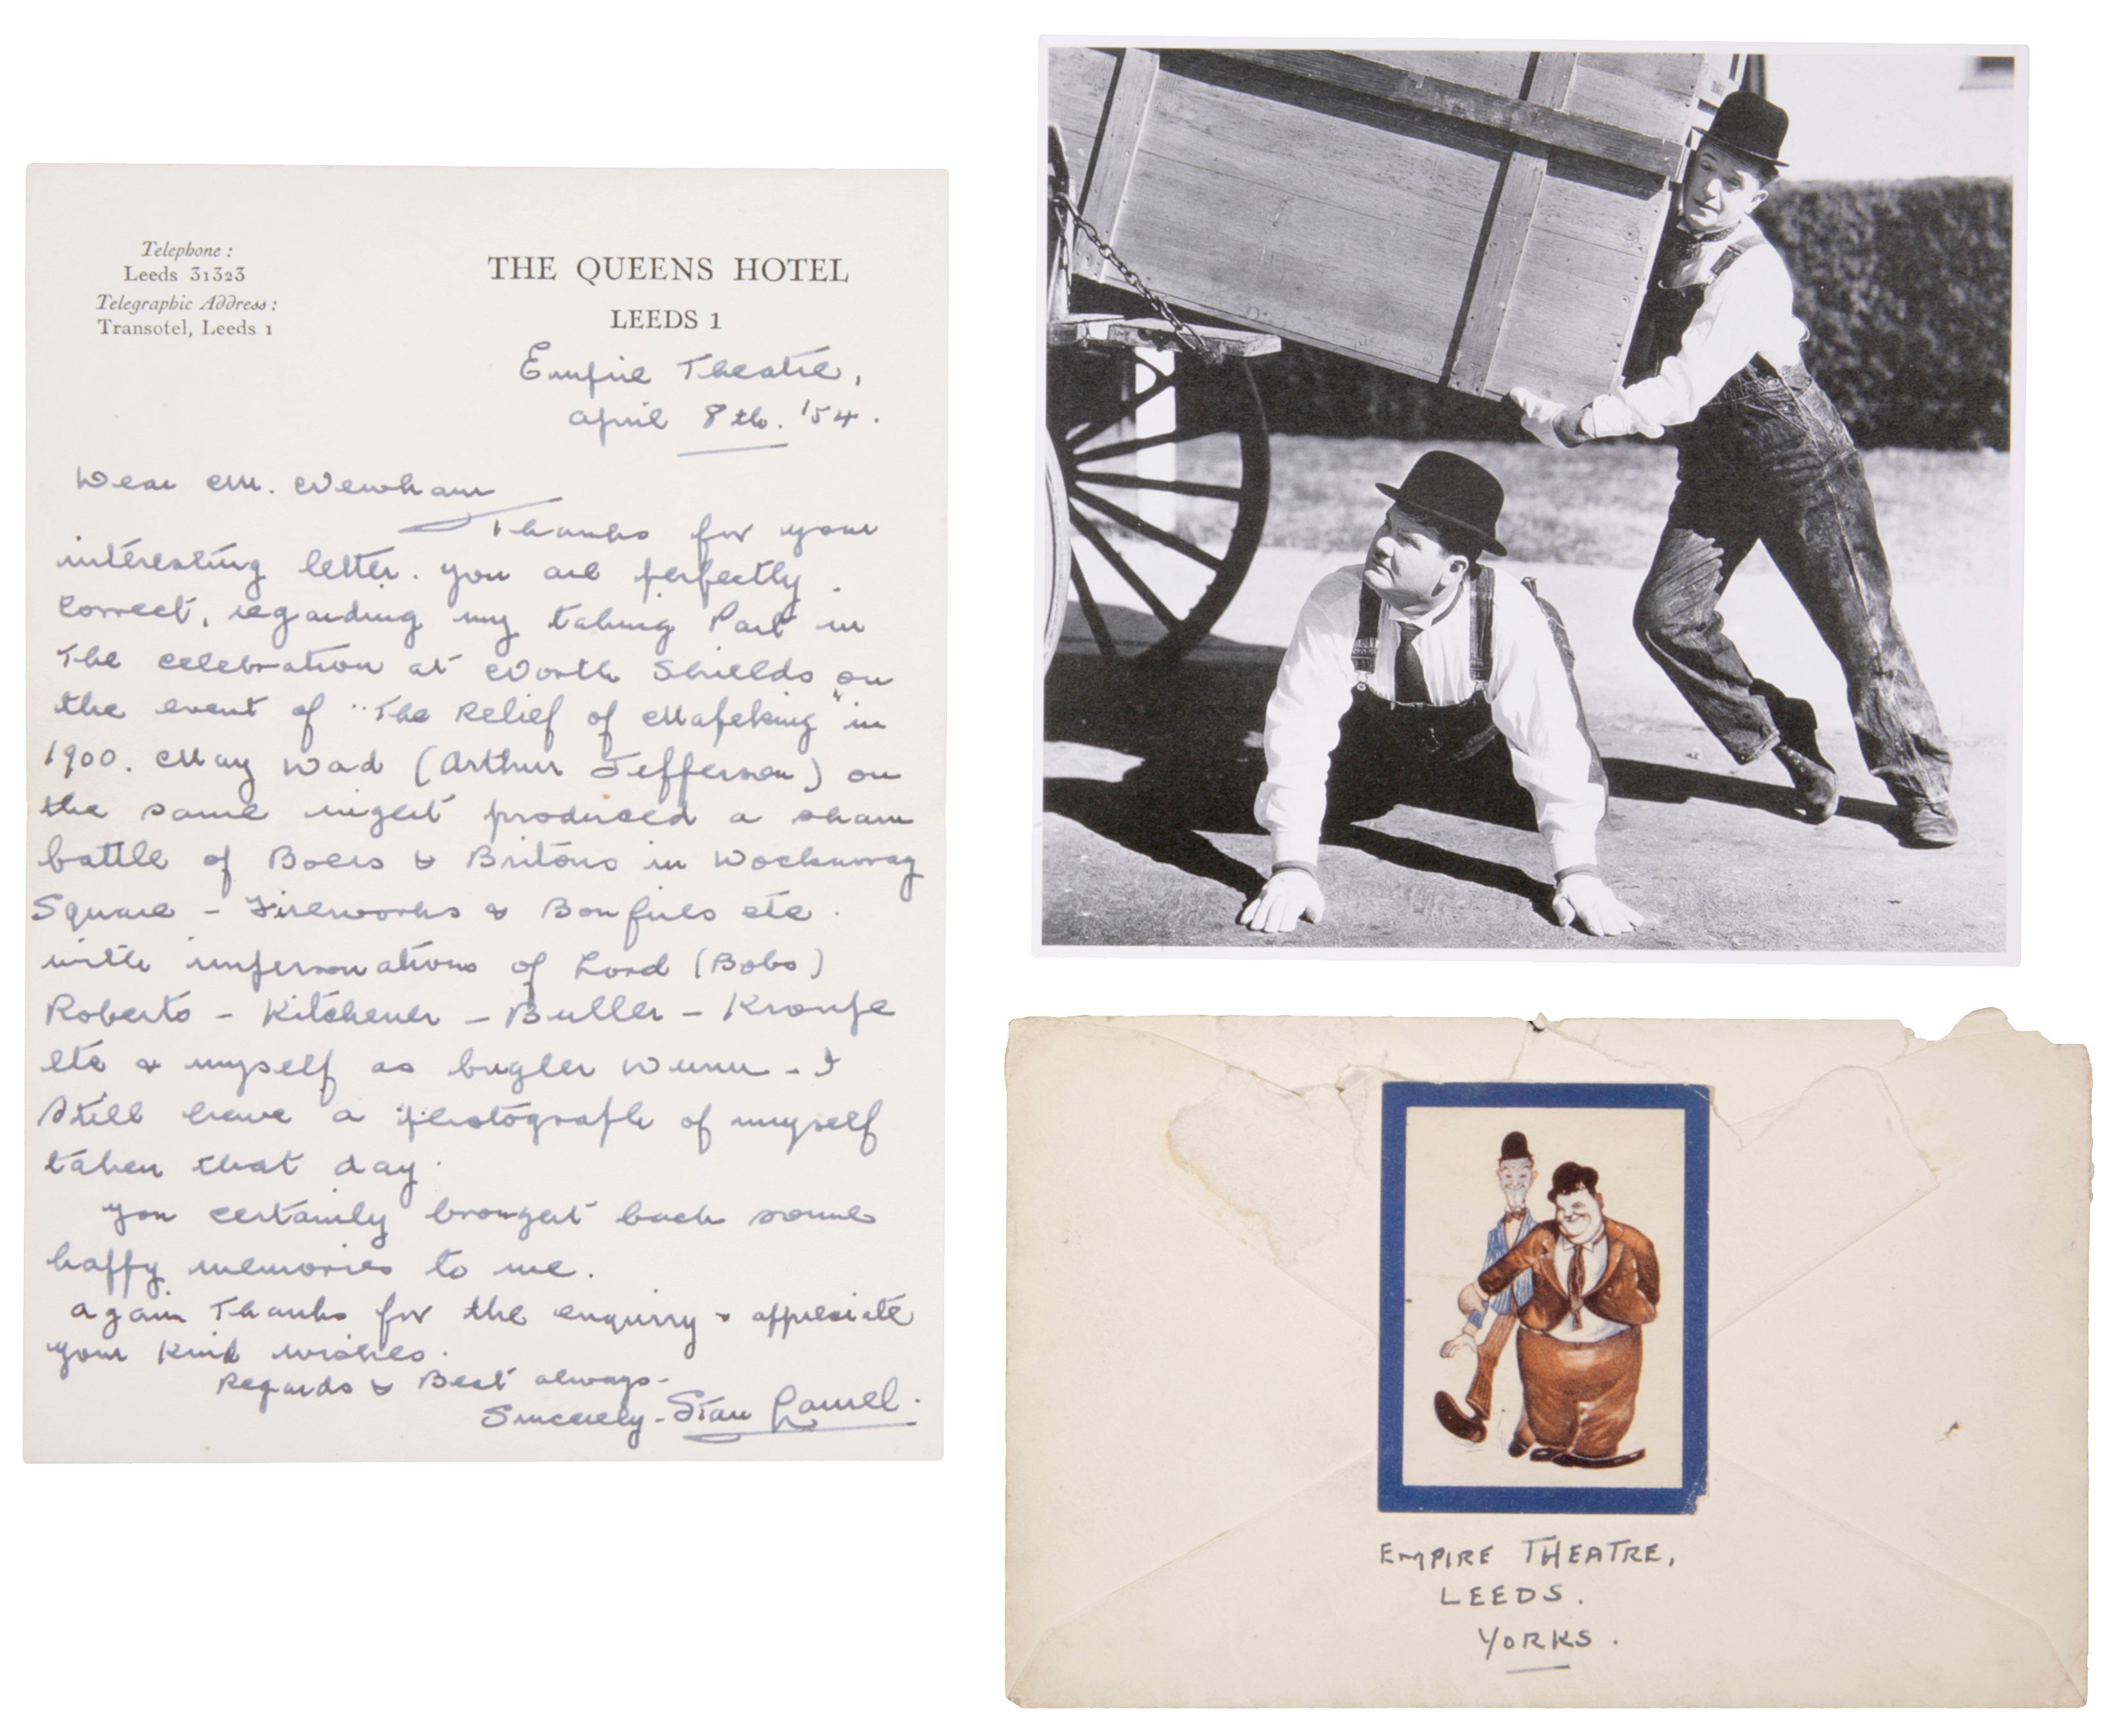 Telephone :
Leeds 31323
Telegraphic Address :
Transotel, Leeds 1
THE QUEENS HOTEL
LEEDS 1
Empire Theatre,
April 8th. '54.
Dear Mr. Newham
Thanks for your
interesting letter. you are perfectly
correct, regarding my taking Part in
The celebration at North Shields on
the event of "The Relief of Mafeking" in
1900. My Dad (Arthur Jefferson) on
the same night produced a sham
battle of Boers & Britons in Dockwray
Square - Fireworks & Bonfires etc.
with impersonations of Lord (Bobs)
Roberts - Kitchener - Buller - Kronje
etc & myself as bugler Dunn - I
still have a photograph of myself
taken that day.
you certainly brought back some
happy memories to me.
again Thanks for the enquiry & appreciate
your Kind wishes.
Regards & Best always -
Sincerely - Stan Laurel.
EMPIRE THEATRE,
LEEDS.
YORKS.